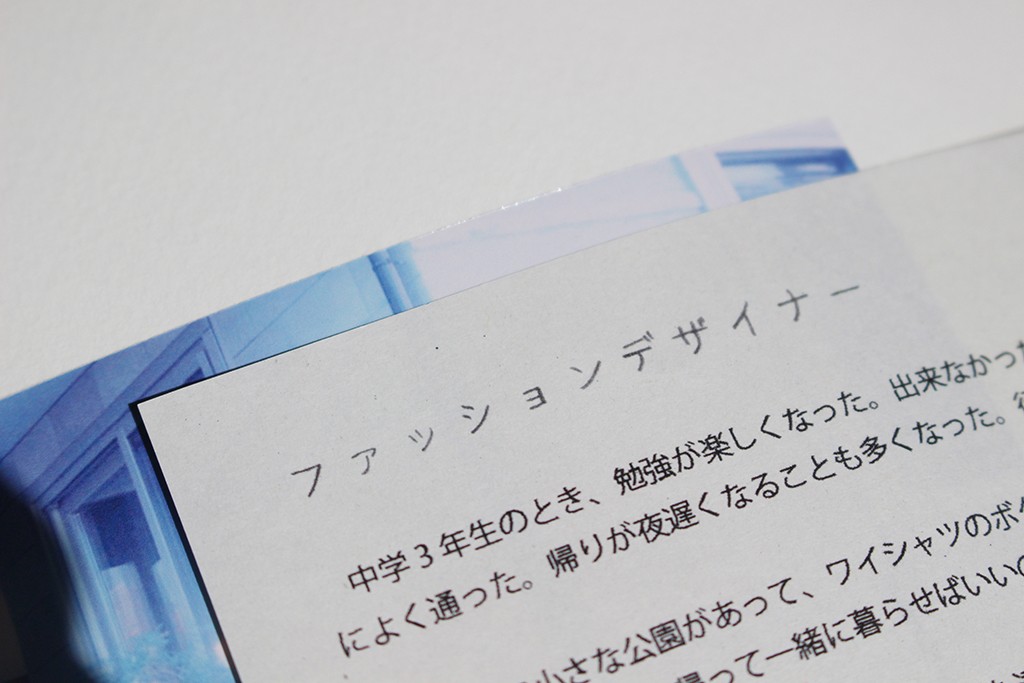 ファッションデザイナー
中学3年生のとき、勉強が楽しくなった。出来なかった
によく通った。帰りが夜遅くなることも多くなった。
小さな公園があって、ワイシャツのボタ
帰って一緒に暮らせばいいの